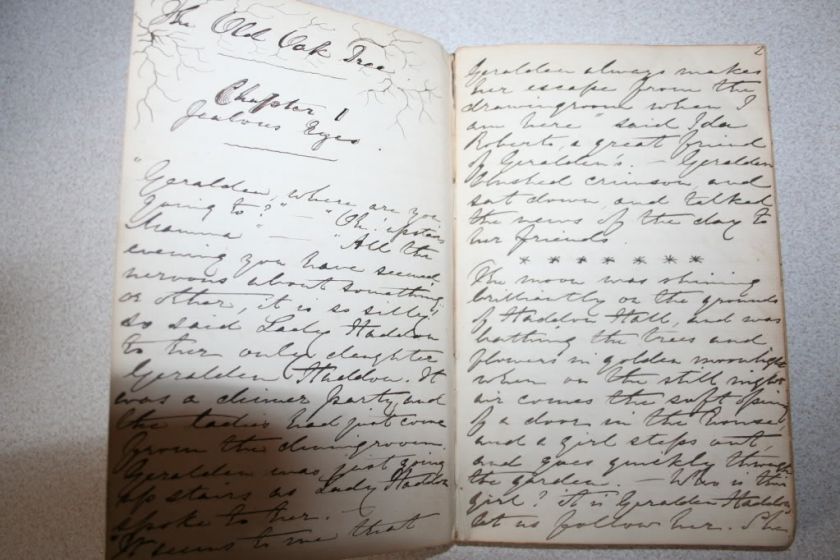 The Old Oak Tree.
Chapter 1
Jealous Eyes.
"Geralden, where are you
going to?" – "Oh! upstairs
Mamma" – "All the
evening you have seemed
nervous about something
or other, it is so silly"
so said Lady Haddon
to her only daughter
Geralden Haddon. It
was a dinner party, and
the ladies had just come
from the diningroom.
Geralden was just going
up stairs as Lady Haddon
spoke to her. –
"It seems to me that
2
Geralden always makes
her escape from the
drawingroom when I
am here" said Ida
Roberts, a great friend
of Geralden's. – Geralden
blushed crimson, and
sat down, and talked
the news of the day to
her friends.
* * * * * * *
The moon was shining
brilliantly on the grounds
of Haddon Hall, and was
bathing the trees and
flowers in golden moonlight
when on the still night
air comes the soft opening
of a door in the house
and a girl steps out,
and goes quickly through
the garden. – Who is this
girl? it is Geralden Haddon,
let us follow her. She